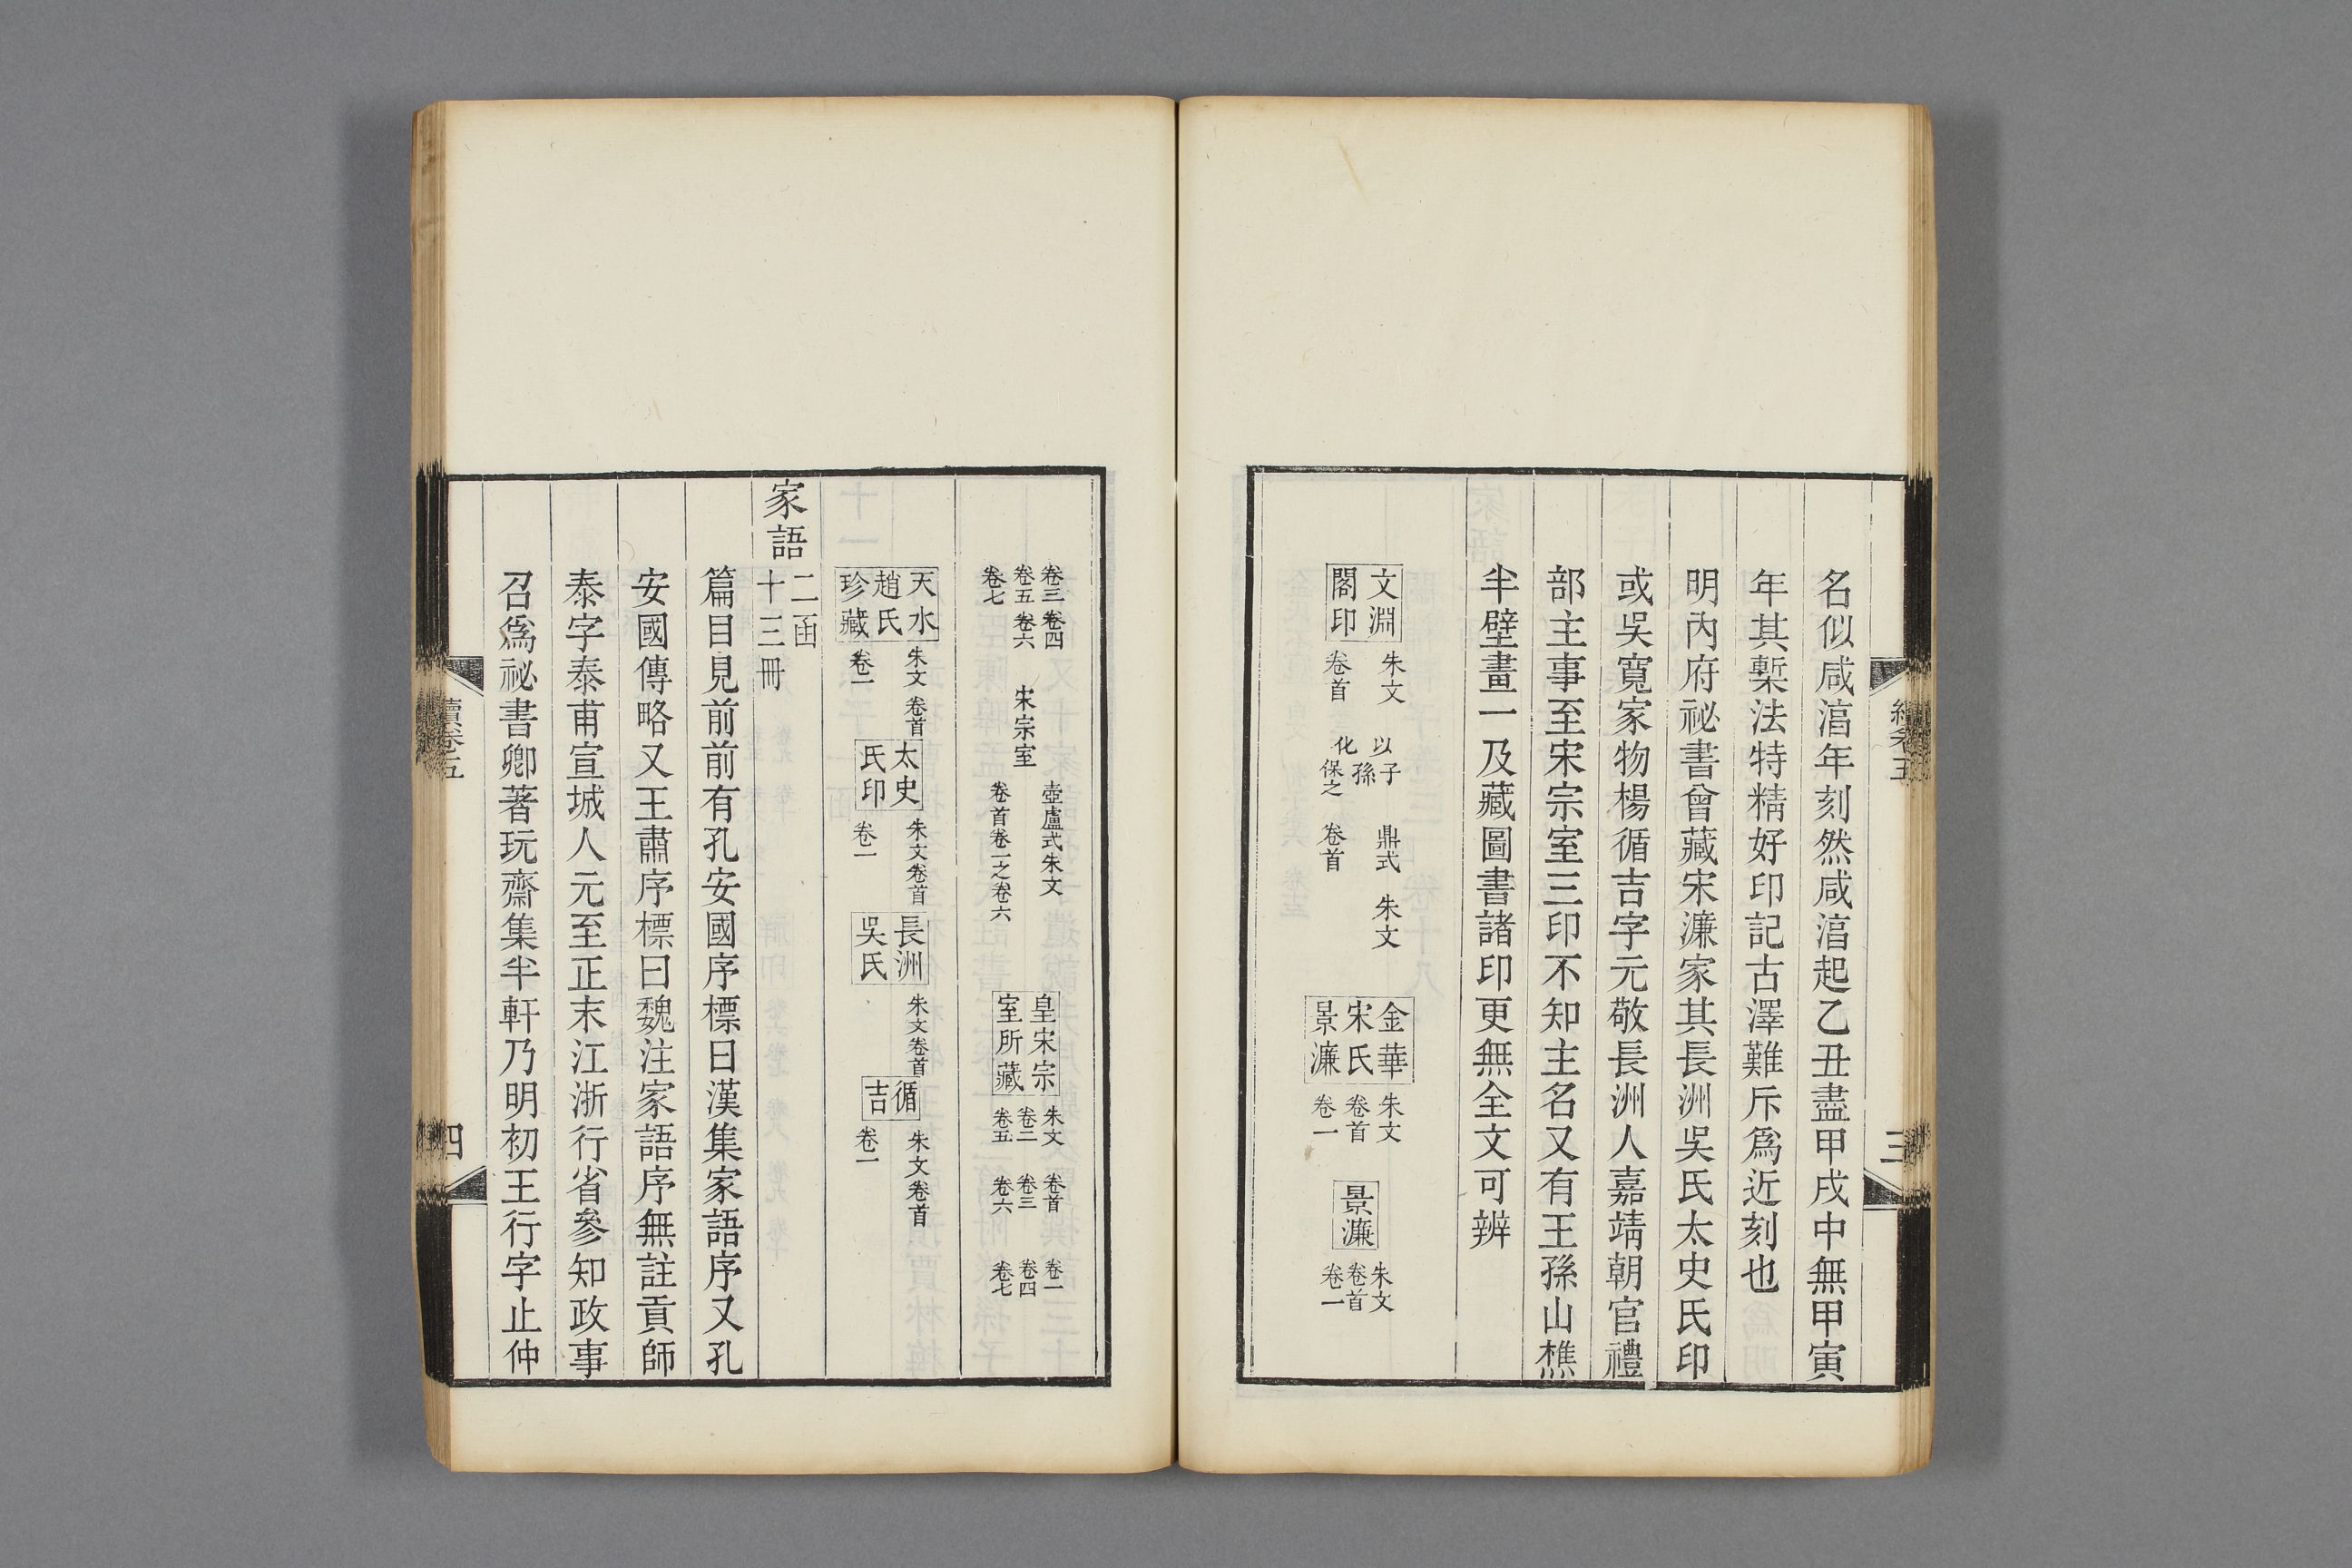 名似咸淳年刻然咸淳起乙丑盡甲戌中無甲寅
年其槧法特精好印記古澤難斥爲近刻也
明內府祕書曾藏宋濂家其長洲吳氏太史氏印
或吳寬家物楊循吉字元敬長洲人嘉靖朝官禮
部主事至宋宗室三印不知主名又有王孫山樵
半壁畫一及藏圖書諸印更無全文可辨
文淵
閣印
朱文
卷首
以子
孫
化
保之
鼎式 朱文
卷首
金華
宋氏
景濂
朱文
卷首
卷一
景濂
朱文
卷首
卷一
續卷五
三
卷三 卷四
卷五 卷六
卷七
宋宗室
壺盧式朱文
卷首卷一之卷六
皇宋宗
室所藏
朱文 卷首 卷一
卷二 卷三 卷四
卷五 卷六 卷七
天水
趙氏
珍藏
朱文 卷首
卷一
太史
氏印
朱文卷首
卷一
長洲
吳氏
朱文卷首
循
吉
朱文卷首
卷一
家語
二函
十三冊
篇目見前前有孔安國序標曰漢集家語序又孔
安國傳略又王肅序標曰魏注家語序無註貢師
泰字泰甫宣城人元至正末江浙行省參知政事
召爲祕書卿著玩齋集半軒乃明初王行字止仲
續卷五
四